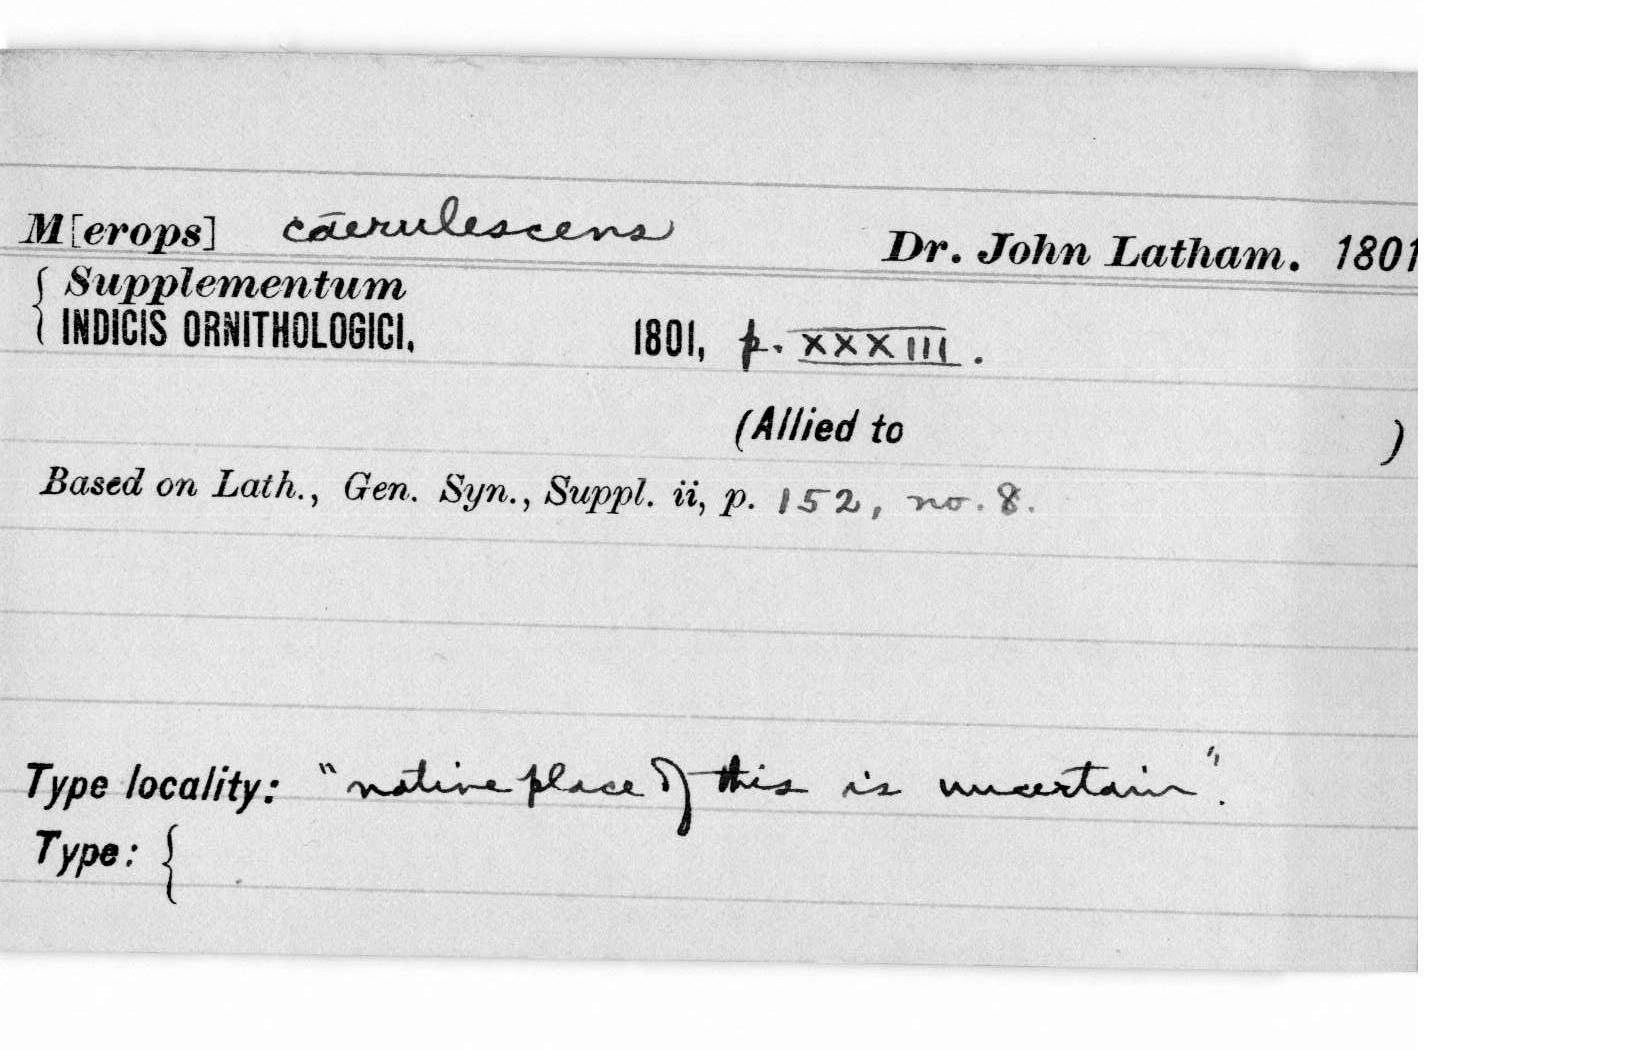 M[erops] caerulescens Dr. John Latham. 1801
{ Supplementum
INDICIS ORNITHOLOGICI. 1801, p. XXXIII.
(Allied to )
Based on Lath., Gen. Syn., Suppl. ii, p. 152, no. 8.
Type locality: "native place of this is uncertain".
Type: {